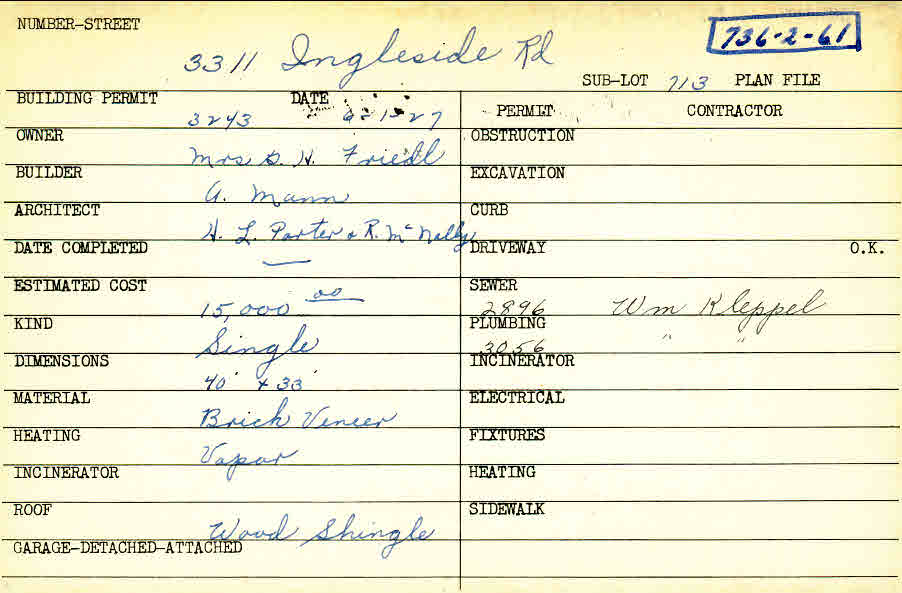 NUMBER-STREET
3311 Ingleside Rd
736-2-61
SUB-LOT 713 PLAN FILE
BUILDING PERMIT 3243 DATE
OWNER Mrs H. Friedl
BUILDER A. Mann
ARCHITECT H. L. Porter & R. McNally
DATE COMPLETED —
ESTIMATED COST 15,000 00
KIND Single
DIMENSIONS 40' x 33'
MATERIAL Brick Veneer
HEATING Vapor
INCINERATOR
ROOF Wood Shingle
GARAGE-DETACHED-ATTACHED
PERMIT CONTRACTOR
OBSTRUCTION
EXCAVATION
CURB
DRIVEWAY O.K.
SEWER 2896 Wm Kleppel
PLUMBING 3056 " "
INCINERATOR
ELECTRICAL
FIXTURES
HEATING
SIDEWALK